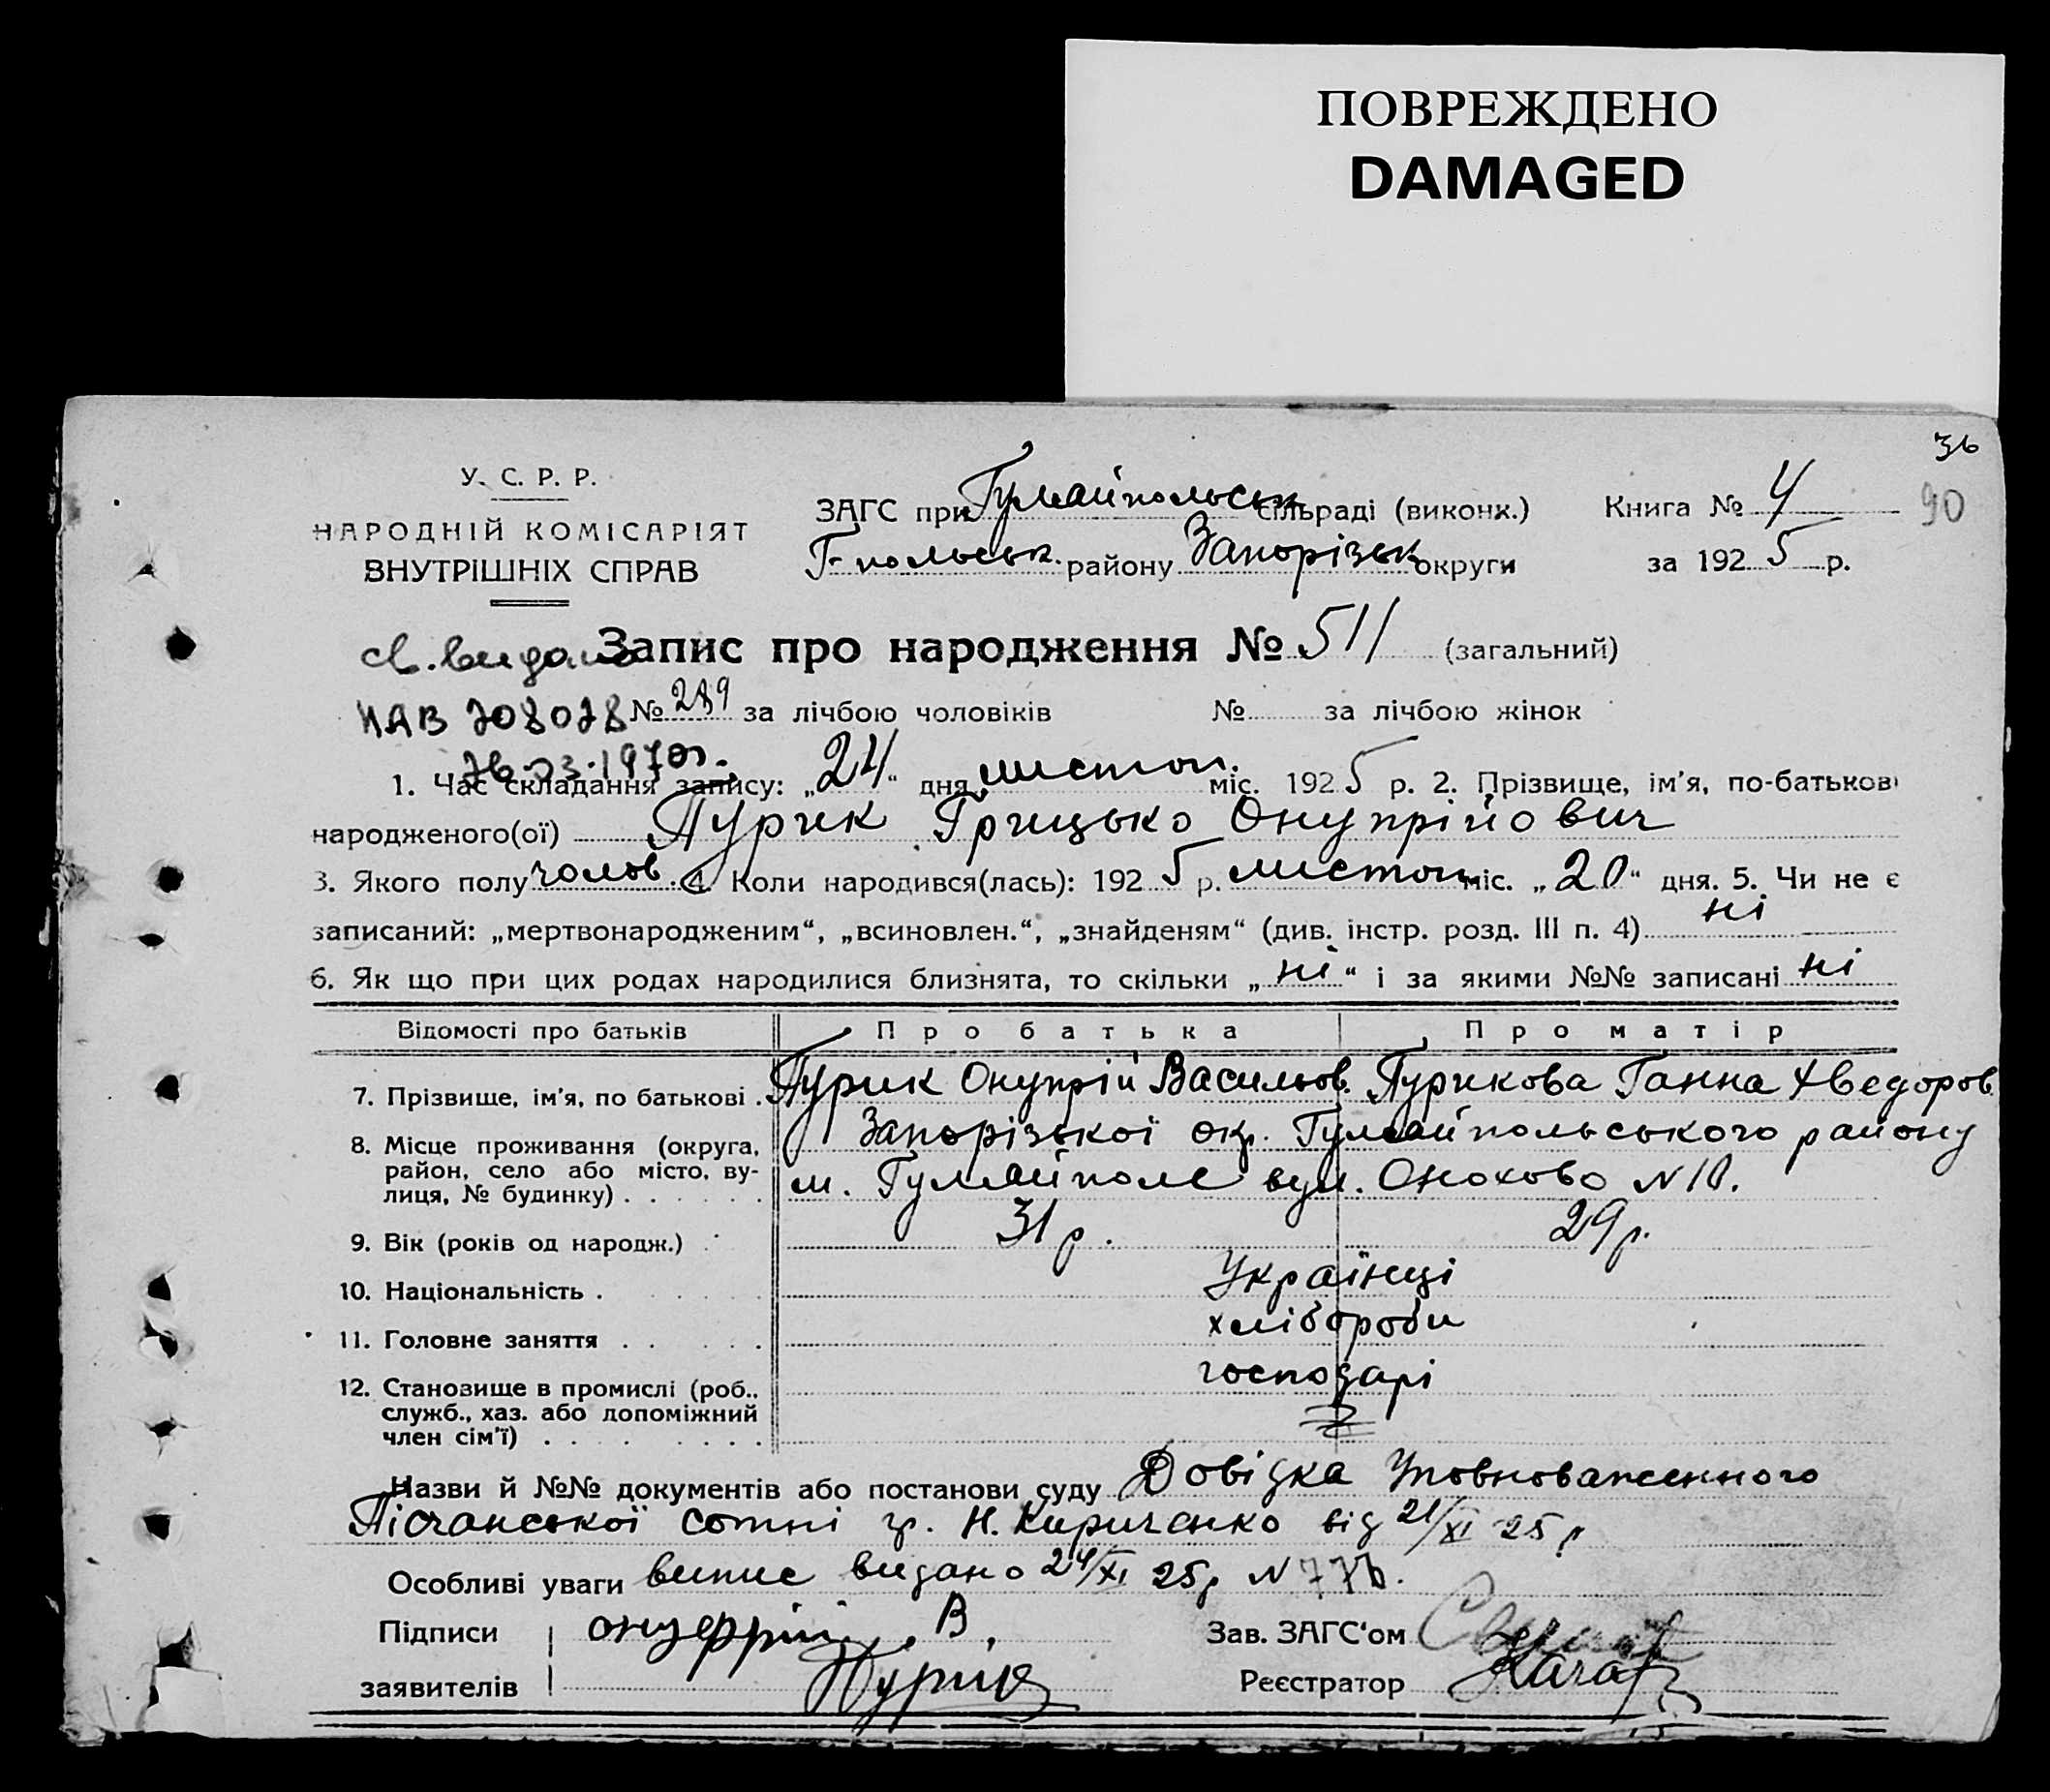 ПОВРЕЖДЕНО
DAMAGED
36
90
У. С. Р. Р.
НАРОДНІЙ КОМІСАРІЯТ
ВНУТРІШНІХ СПРАВ
ЗАГС при Гуляйпольськ сільраді (виконк.)
Г-польськ. району Запорізьк округи
Книга № 4
за 1925 р.
св. видано
Запис про народження № 511 (загальний)
708078 № 289 за лічбою чоловіків № за лічбою жінок
26.03.1970г.
1. Час складання запису: „24“ дня листоп. міс. 1925 р. 2. Прізвище, ім'я, по-батькові
народженого(ої) Пурик Грицько Онупрійович
3. Якого полу чолов. 4. Коли народився(лась): 1925 р. листоп. міс. „20“ дня. 5. Чи не є
записаний: „мертвонародженим“, „всиновлен.“, „знайденям“ (див. інстр. розд. III п. 4) ні
6. Як що при цих родах народилися близнята, то скільки „ні“ і за якими №№ записані ні
Відомості про батьків Про батька Про матір
7. Прізвище, ім'я, по батькові . Пурик Онупрій Васильов. Пурикова Ганна Хведоров.
8. Місце проживання (округа, район, село або місто, вулиця, № будинку) . Запорізької окр. Гуляйпольського району
м. Гуляйполе вул. Онохово N 10.
9. Вік (років од народж.) 31 р. 29 р.
10. Національність . Українці
11. Головне заняття . хлібороби
12. Становище в промислі (роб., служб., хаз. або допоміжний член сім'ї) . господарі
Назви й №№ документів або постанови суду Довідка Уповноваженного
Пісчанської сотні гр. Н. Кириченко від 21/XI 25 р
Особливі уваги випис видано 24/XI 25р N 776.
Підписи онуфрий. В. Зав. ЗАГС'ом
заявителів Пурик Реєстратор